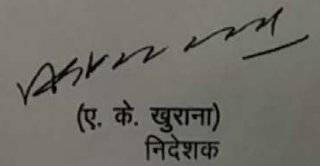 (ए. के. खुराना)
निदेशक